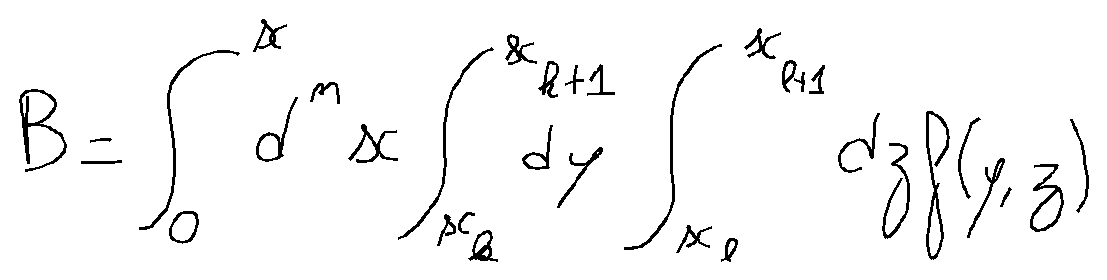 B = ∫_0^x d^n x ∫_{x_k}^{x_{k+1}} dy ∫_{x_l}^{x_{l+1}} dz f(y, z)